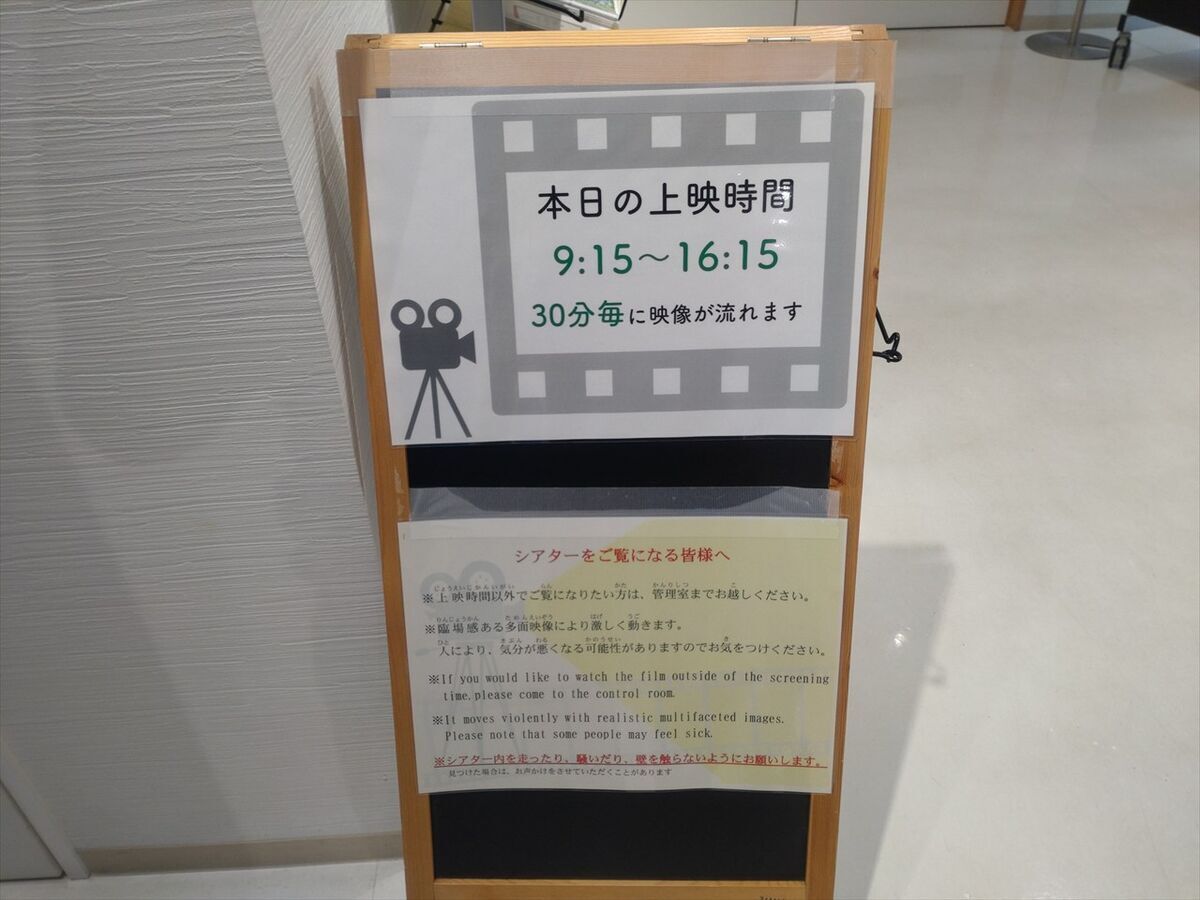 本日の上映時間
9:15〜16:15
30分毎に映像が流れます
シアターをご覧になる皆様へ
※上映時間以外でご覧になりたい方は、管理室までお越しください。
※臨場感ある多面映像により激しく動きます。
人により、気分が悪くなる可能性がありますのでお気をつけください。
※If you would like to watch the film outside of the screening
time,please come to the control room.
※It moves violently with realistic multifaceted images.
Please note that some people may feel sick.
※シアター内を走ったり、騒いだり、壁を触らないようにお願いします。
見つけた場合は、お声かけをさせていただくことがあります